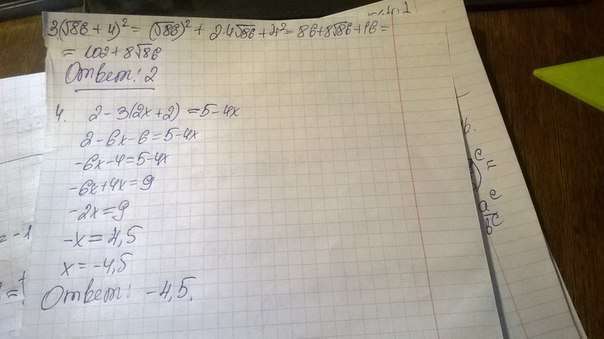 3(√86 + 4)² = (√86)² + 2·4√86 + 4² = 86 + 8√86 + 16 =
= 102 + 8√86
Ответ: 2
4. 2 - 3(2x + 2) = 5 - 4x
2 - 6x - 6 = 5 - 4x
-6x - 4 = 5 - 4x
-6x + 4x = 9
-2x = 9
-x = 4,5
x = -4,5
Ответ: -4,5.
= -1